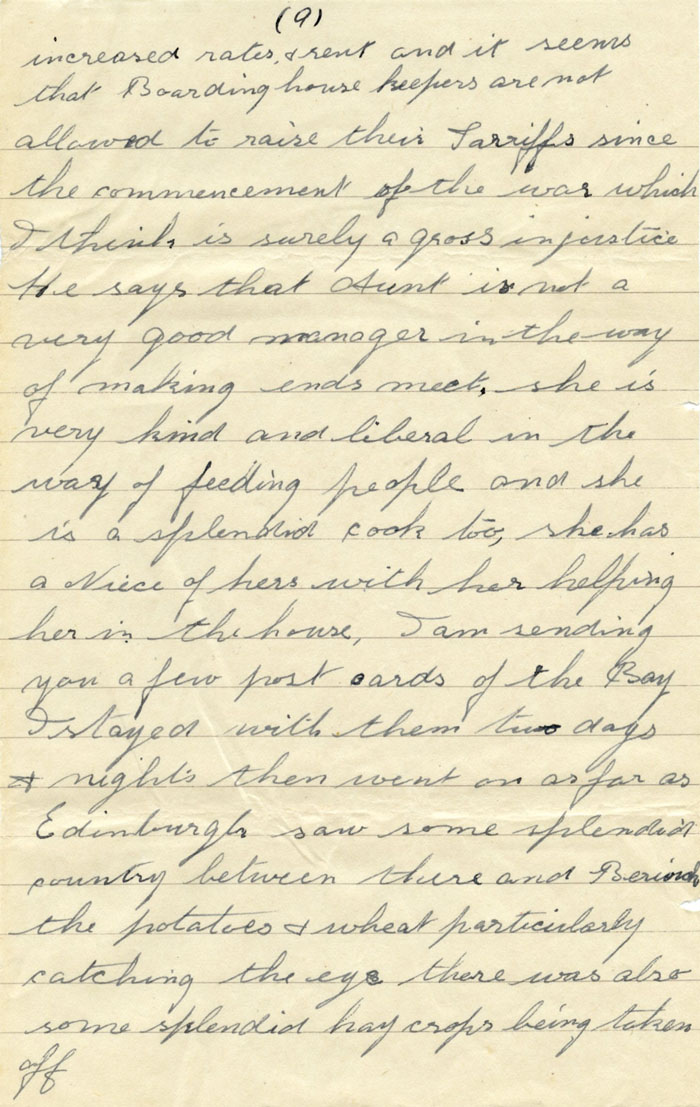 (9)
increased rates, & rent and it seems
that Boarding house keepers are not
allowed to raise their Tarriffs since
the commencement of the war which
I think is surely a gross injustice
He says that Aunt is not a
very good manager in the way
of making ends meet, she is
very kind and liberal in the
way of feeding people and she
is a splendid cook too, she has
a Niece of hers with her helping
her in the house, I am sending
you a few post cards of the Bay
I stayed with them two days
& nights then went on as far as
Edinburgh saw some splendid
country between there and
the potatoes & wheat particularly
catching the eye there was also
some splendid hay crops being taken
off